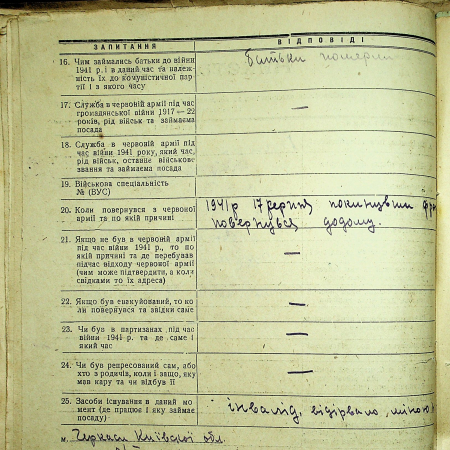 ЗАПИТАННЯ ВІДПОВІДІ
16. Чим займались батьки до війни Батьки померли
1941 р. і в даний час та належ-
ність їх до комуністичної пар-
тії і з якого часу
17. Служба в червоній армії під час —
громадянської війни 1917—22
років, рід військ та займаєма
посада
18. Служба в червоній армії під
час війни 1941 року, який час,
рід військ, останнє військове
звання та займаєма посада
19. Військова спеціальність
№ (ВУС)
20. Коли повернувся з червоної 1941 р 17 серпня покинувши
армії та по якій причині повернувся додому.
21. Якщо не був в червоній армії
під час війни 1941 р., то по
якій причині та де перебував —
підчас відходу червоної армії
(чим може підтвердити, а коли
свідками то їх адреса)
22. Якщо був евакуйований, то ко- —
ли повернувся та звідки саме
23. Чи був в партизанах під час —
війни 1941 р. та де саме і
який час
24. Чи був репресований сам, або —
хто з родичів, коли і защо, яку
мав кару та чи відбув її
25. Засоби існування в даний мо- інвалід, відірвало міною
мент (де працює і яку займає
посаду)
м. Черкаси Київської обл.